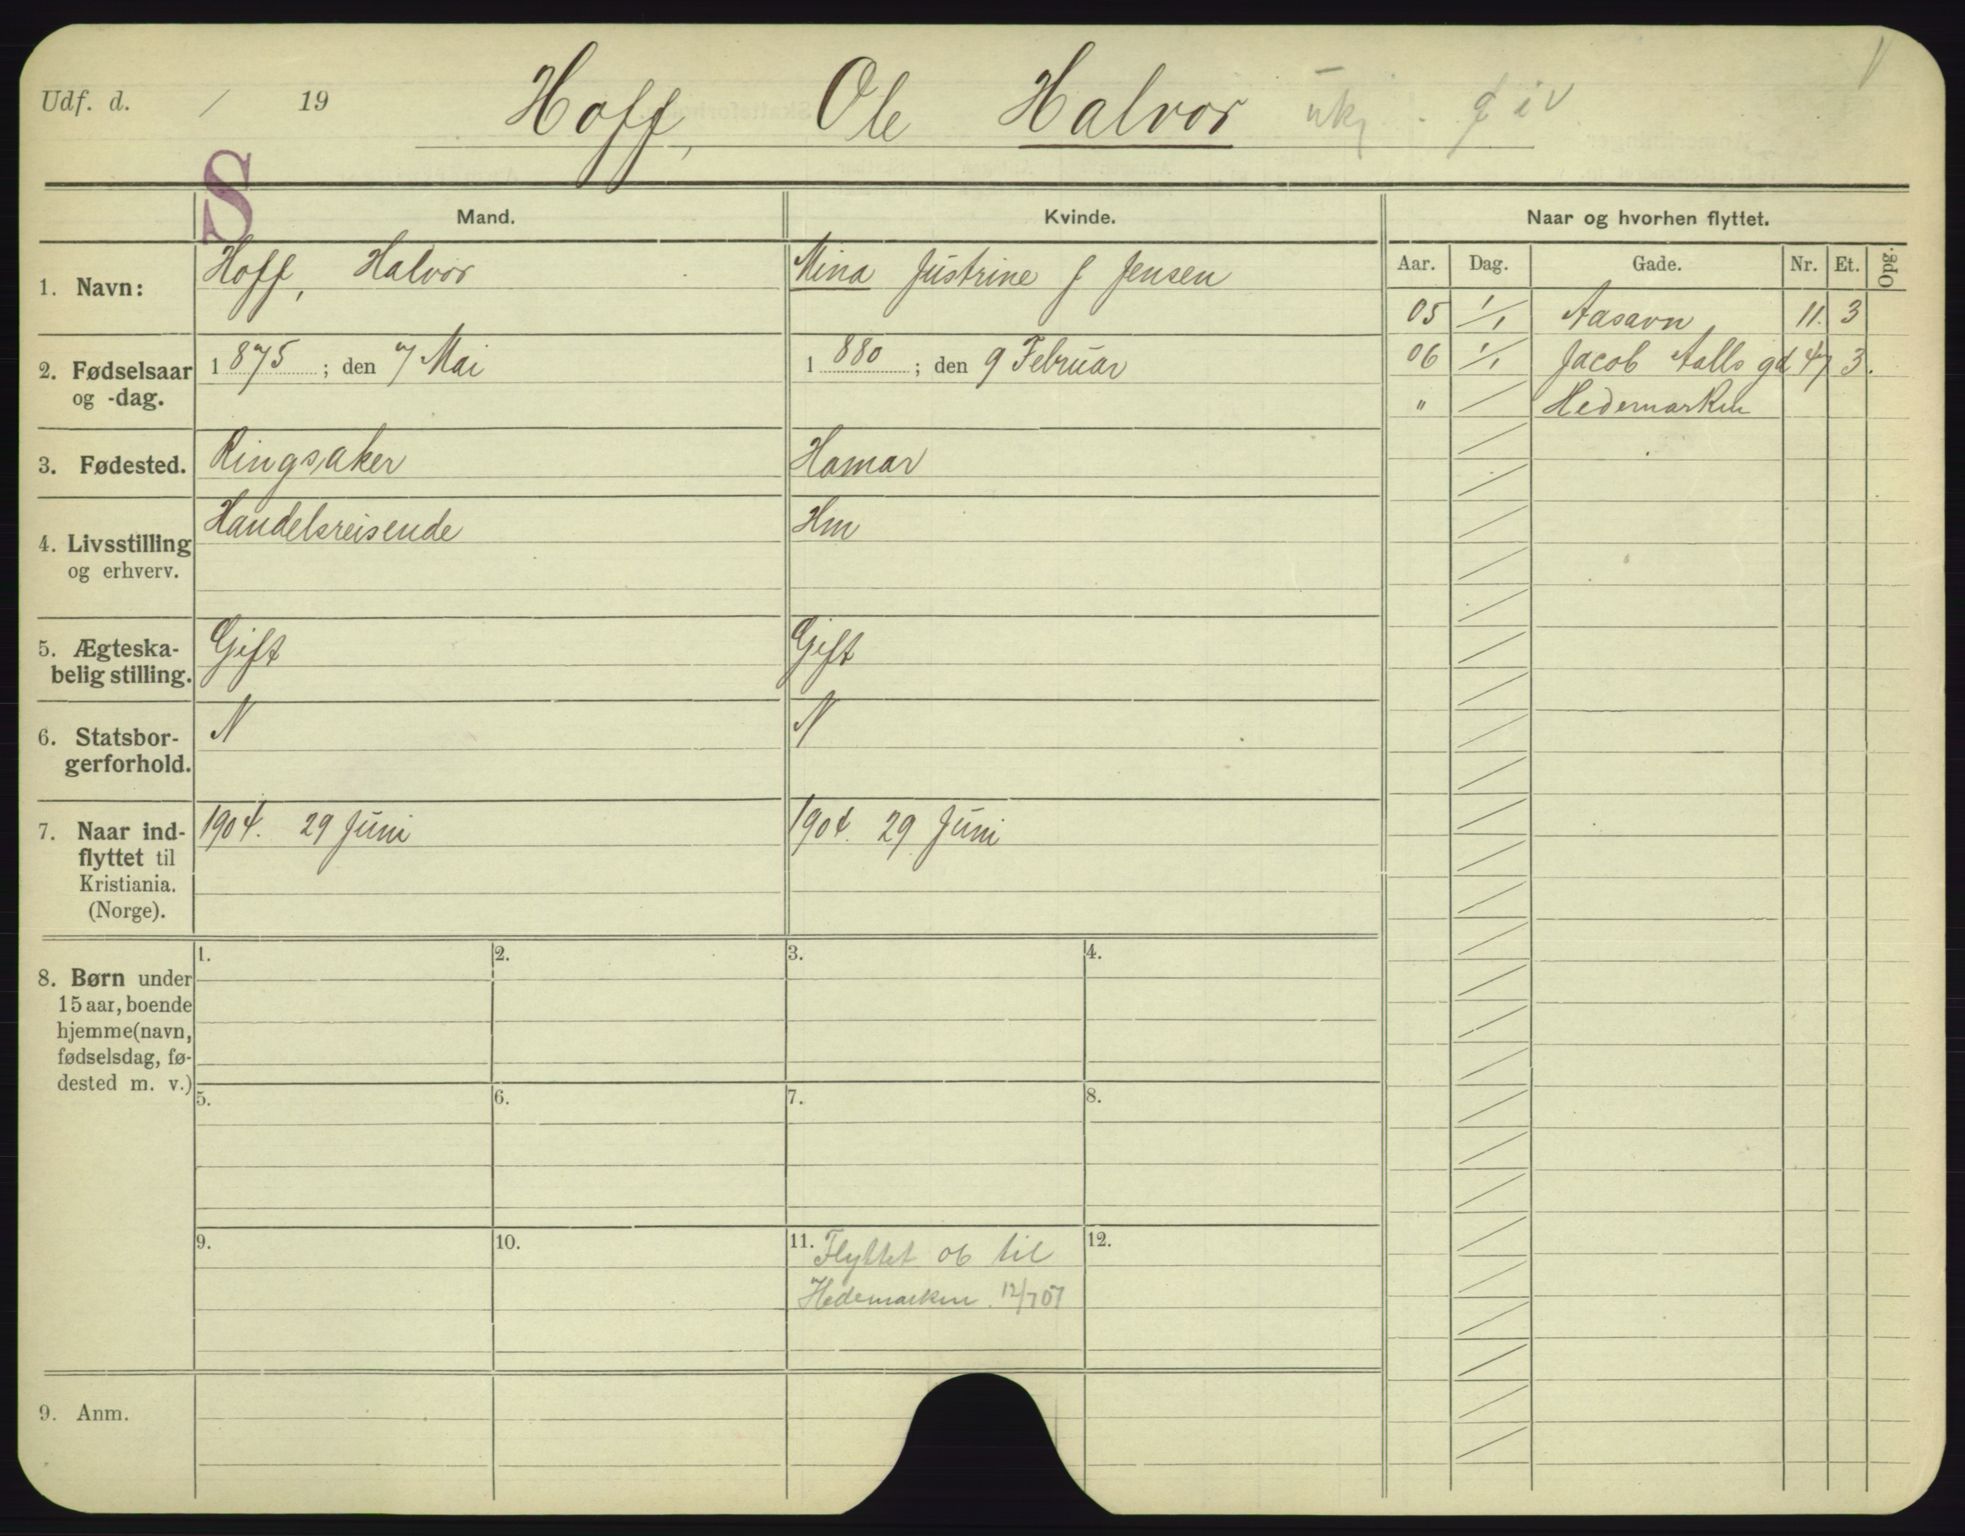 Udf. d. / 19
Hoff, Ole Halvor
S
Mand. Kvinde. Naar og hvorhen flyttet.
Aar. Dag. Gade. Nr. Et. Opg.
1. Navn: Hoff, Halvor Mina Justrine f Jensen
2. Fødselsaar og -dag. 1875; den 7 Mai 1880; den 9 Februar
3. Fødested. Ringsaker Hamar
4. Livsstilling og erhverv. Handelsreisende Hm
5. Ægteskabelig stilling. Gift Gift
6. Statsborgerforhold. N N
7. Naar indflyttet til Kristiania. (Norge). 1904. 29 Juni 1904. 29 Juni
05 1/1 Aasavn 11. 3
06 1/1 Jacob Aalls gd 47 3.
" / Hedemarken
8. Børn under
15 aar, boende
hjemme (navn,
fødselsdag, fø-
dested m. v.)
1. 2. 3. 4.
5. 6. 7. 8.
9. 10. 11. 12.
Flyttet 06 til
Hedemarken. 12/7 07
9. Anm.